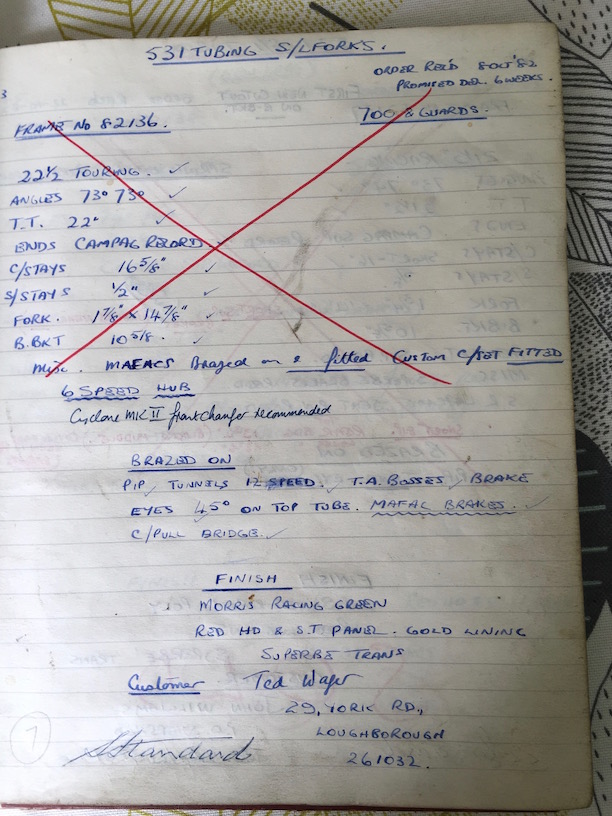 531 TUBING S/L FORKS.
ORDER REC'D 8 OCT '82
PROMISED DEL. 6 WEEKS.
3
700 & GUARDS.
FRAME No 82136.
22½ TOURING. ✓
ANGLES 73° 73° ✓
T.T. 22" ✓
ENDS CAMPAG RECORD ✓
C/STAYS 16 5/8" ✓
S/STAYS ½" ✓
FORK. 1 7/8" x 14 7/8" ✓
B.BKT 10 5/8. ✓
Misc. MAFACS Brazed on & fitted Custom C/SET FITTED
6 SPEED HUB
Cyclone MK II front changer recommended
BRAZED ON
PIP ✓ TUNNELS 12 SPEED. ✓ T.A. BOSSES ✓ BRAKE
EYES 45° ON TOP TUBE. MAFAC BRAKES. ✓
C/PULL BRIDGE. ✓
FINISH
MORRIS RACING GREEN
RED HD & S.T PANEL. GOLD LINING
SUPERBE TRANS
Customer Ted Wager
29, YORK RD.,
LOUGHBOROUGH
261032.
7
Standard